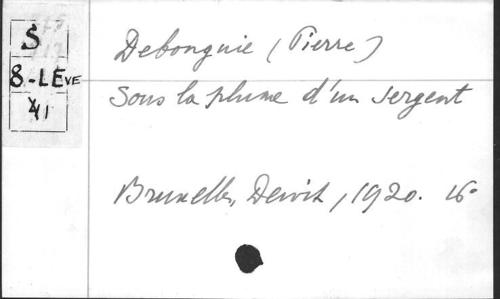 S
8-LEVE
41
Debongnie (Pierre)
Sous la plume d'un sergent
Bruxelles, Dewit, 1920. 16°